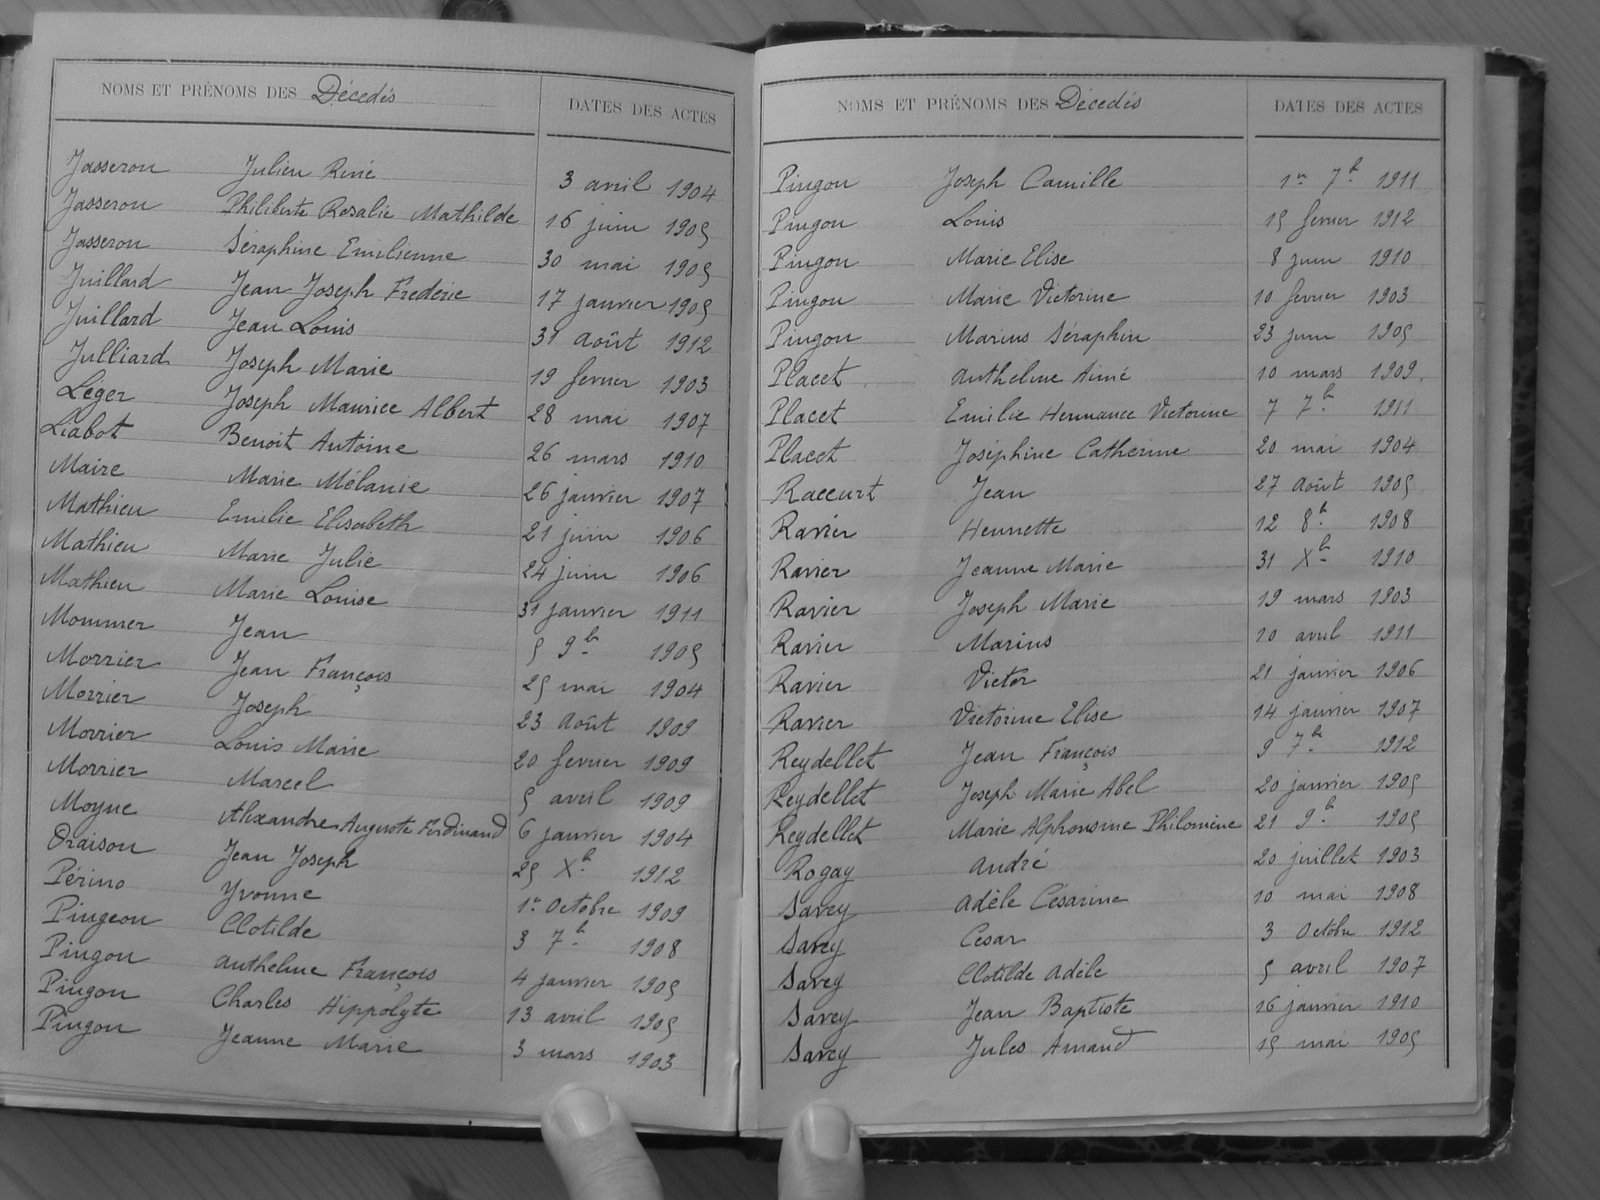 NOMS ET PRÉNOMS DES Décédés DATES DES ACTES
Jasseron Julien René 3 avril 1904
Jasseron Philiberte Rosalie Mathilde 16 juin 1905
Jasseron Séraphine Emilienne 30 mai 1905
Juillard Jean Joseph Frederic 17 janvier 1905
Juillard Jean Louis 31 août 1912
Julliard Joseph Marie 19 fevrier 1903
Léger Joseph Maurice Albert 28 mai 1907
Liabot Benoit Antoine 26 mars 1910
Maire Marie Mélanie 26 janvier 1907
Mathieu Emilie Elisabeth 21 juin 1906
Mathieu Marie Julie 24 juin 1906
Mathieu Marie Louise 31 janvier 1911
Mommer Jean 5 9b. 1905
Morrier Jean François 25 mai 1904
Morrier Joseph 23 août 1909
Morrier Louis Marie 20 fevrier 1909
Morrier Marcel 5 avril 1909
Moyne Alexandre Auguste Ferdinand 6 janvier 1904
Oraison Jean Joseph 25 Xb. 1912
Périno Yvonne 1er Octobre 1909
Pingeon Clotilde 3 7b. 1908
Pingon Anthelme François 4 janvier 1905
Pingon Charles Hippolyte 13 avril 1905
Pingon Jeanne Marie 3 mars 1903
NOMS ET PRÉNOMS DES Décédés DATES DES ACTES
Pingon Joseph Camille 1er 7b. 1911
Pingon Louis 15 fevrier 1912
Pingon Marie Elise 8 juin 1910
Pingon Marie Victorine 10 fevrier 1903
Pingon Marius Séraphin 23 juin 1905
Placet Anthelme Aimé 10 mars 1909
Placet Emilie Hermance Victorine 7 7b. 1911
Placet Joséphine Catherine 20 mai 1904
Raccurt Jean 27 août 1905
Ravier Henriette 12 8b. 1908
Ravier Jeanne Marie 31 Xb. 1910
Ravier Joseph Marie 19 mars 1903
Ravier Marius 10 avril 1911
Ravier Victor 21 janvier 1906
Ravier Victorine Elise 14 janvier 1907
Reydellet Jean François 9 7b. 1912
Reydellet Joseph Marie Abel 20 janvier 1905
Reydellet Marie Alphonsine Philomène 21 9b. 1905
Rogay André 20 juillet 1903
Savey Adèle Césarine 10 mai 1908
Savey César 3 Octobre 1912
Savey Clotilde Adèle 5 avril 1907
Savey Jean Baptiste 16 janvier 1910
Savey Jules Amand 15 mai 1905